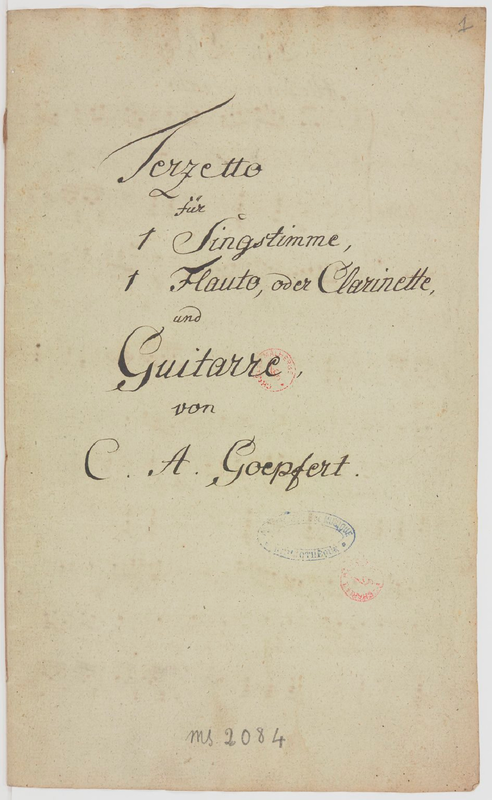 1
Terzetto
für
1 Singstimme,
1 Flauto, oder Clarinette,
und
Guitarre,
von
C. A. Goepfert.
ms 2084